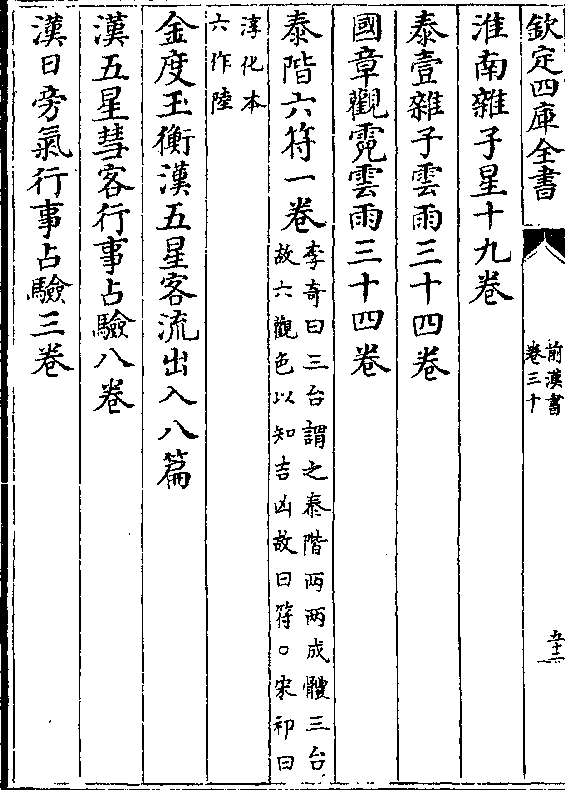 欽定四庫全書
前漢書
卷三十
五十二
淮南雜子星十九卷
泰壹雜子雲雨三十四卷
國章觀霓雲雨三十四卷
泰階六符一卷
李奇曰三台謂之泰階兩兩成體三台
故六觀色以知吉凶故曰符○宋祁曰
淳化本
六作陸
金度玉衡漢五星客流出入八篇
漢五星彗客行事占驗八卷
漢日旁氣行事占驗三卷